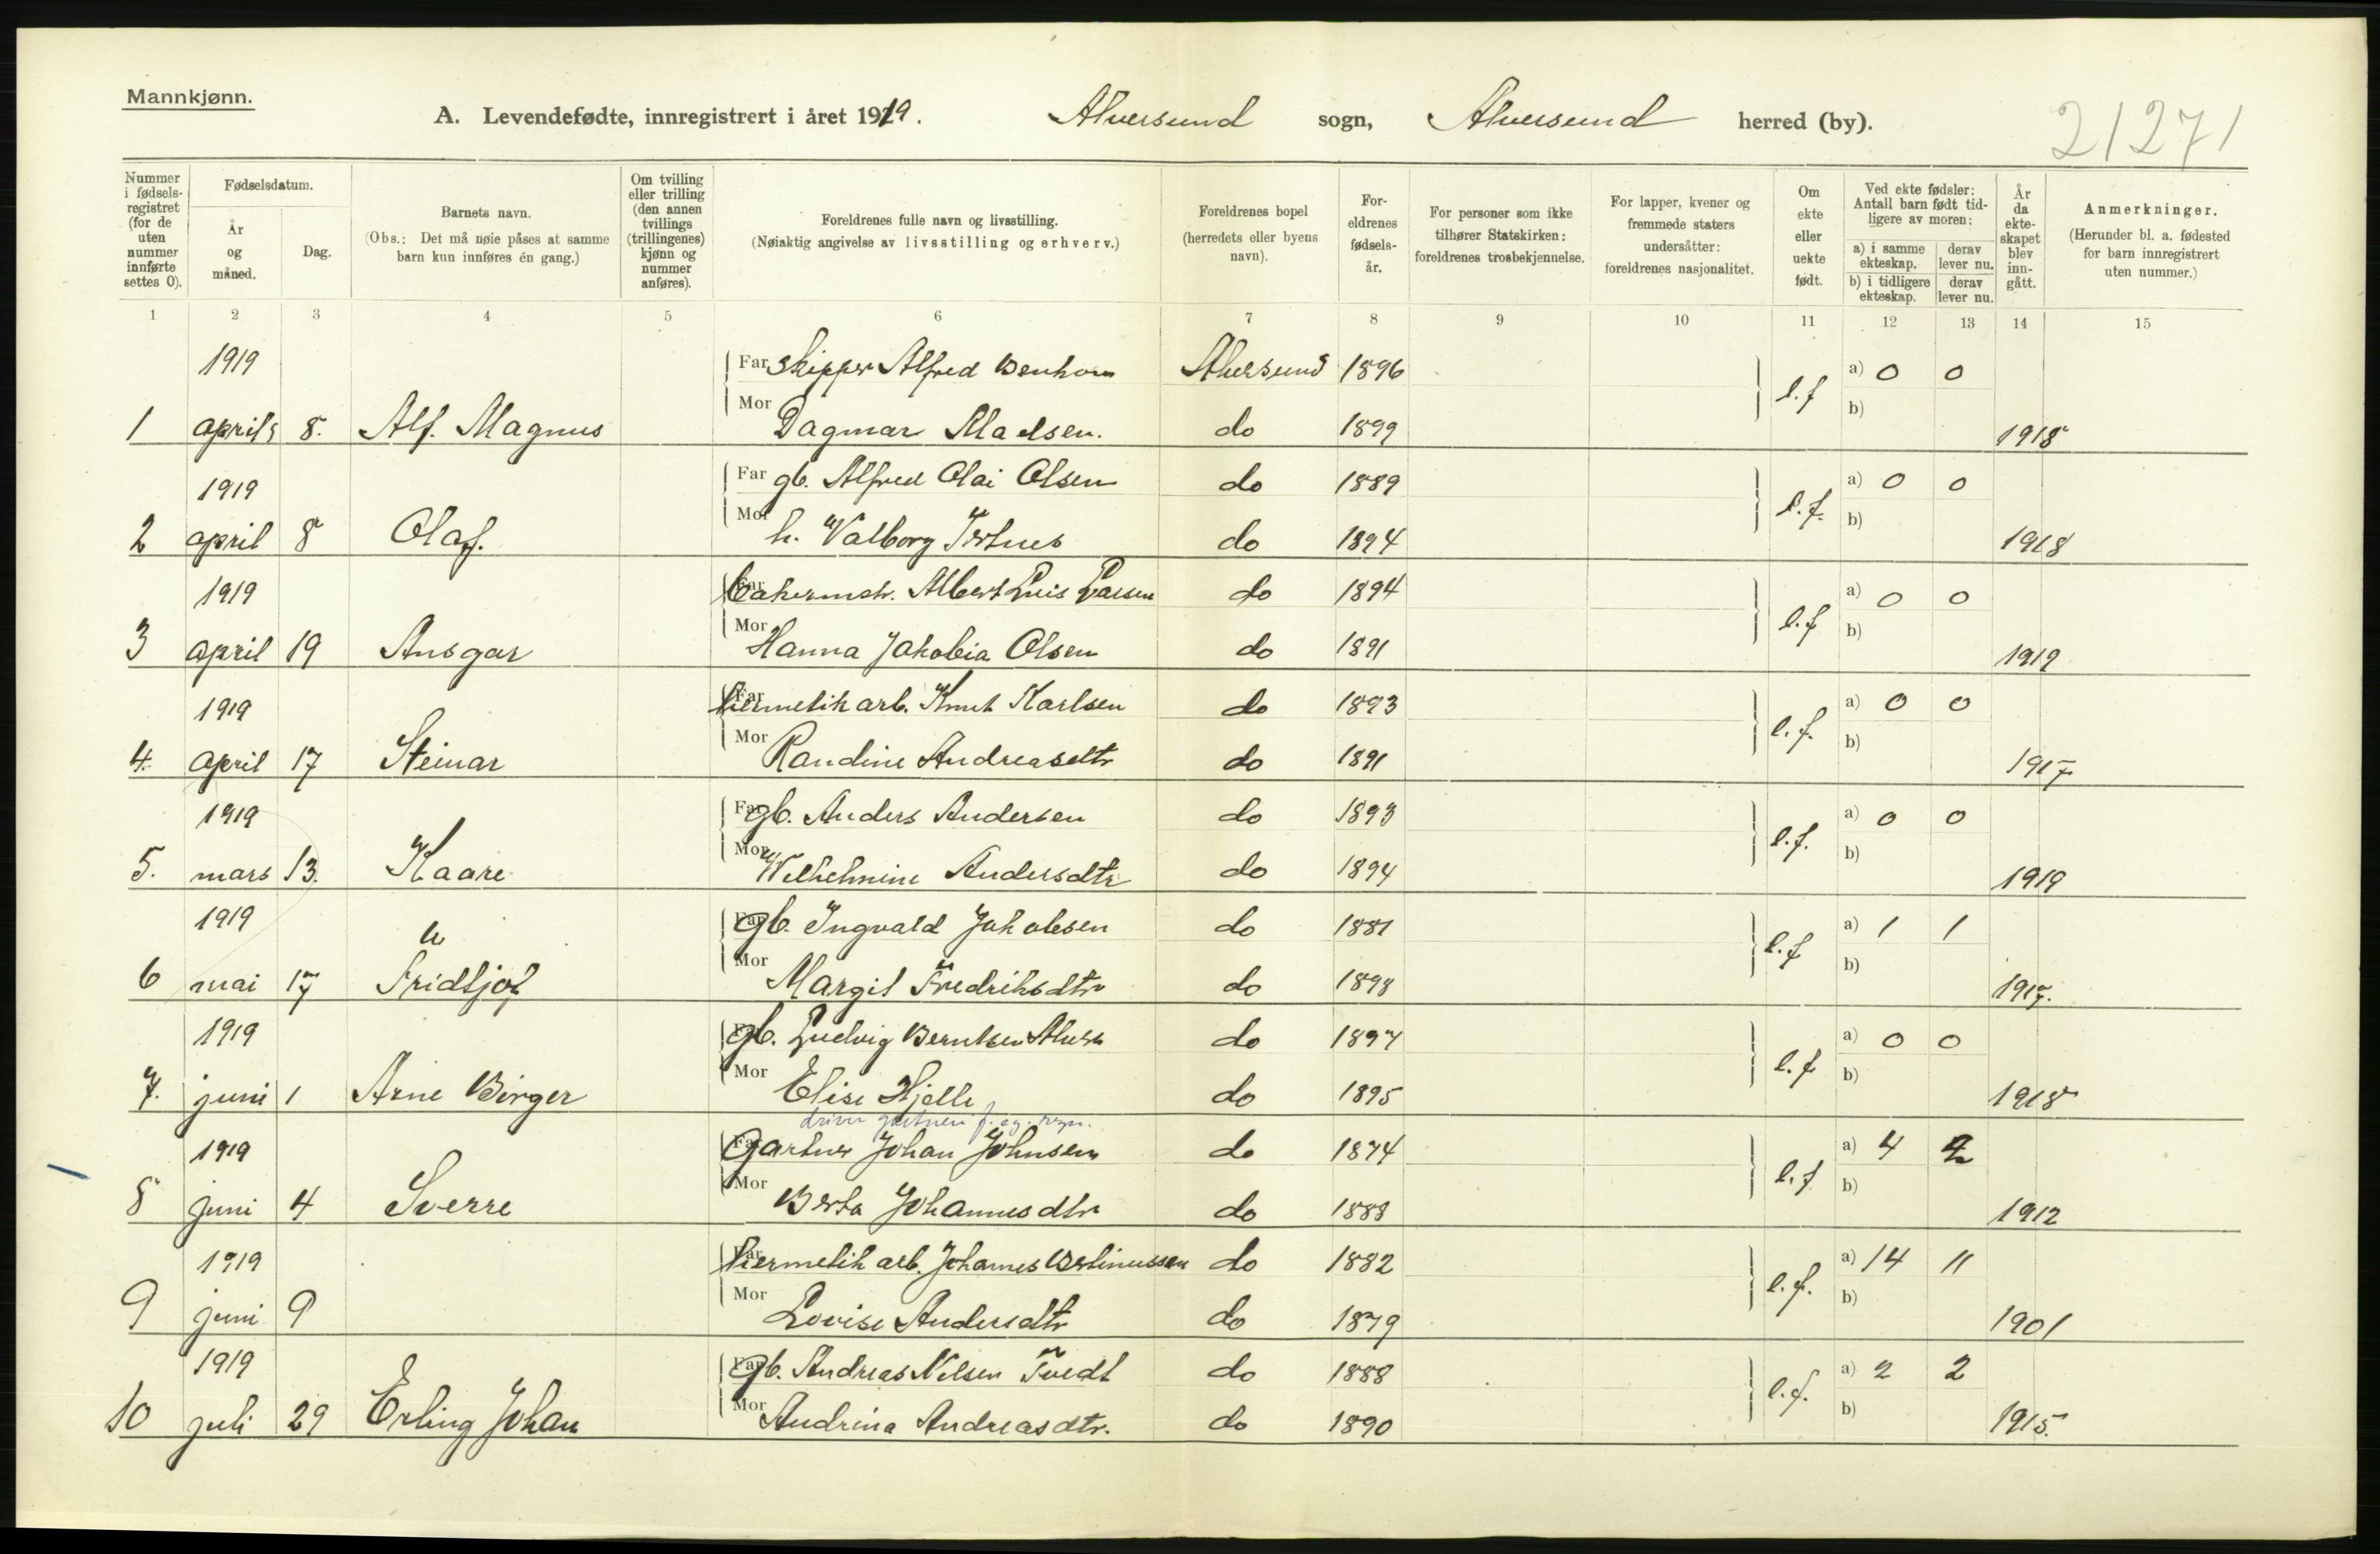 Mannkjønn.
A. Levendefødte, innregistrert i året 1919. Alversund sogn, Alversund herred (by). 21271
Nummer i fødsels-registret (for de uten nummer innførte settes 0).
Fødselsdatum.
År og måned.
Dag.
Barnets navn.
(Obs.: Det må nøie påses at samme barn kun innføres én gang.)
Om tvilling eller trilling (den annen tvillings (trillingenes) kjønn og nummer anføres).
Foreldrenes fulle navn og livsstilling.
(Nøiaktig angivelse av livsstilling og erhverv.)
Foreldrenes bopel (herredets eller byens navn).
For-eldrenes fødsels-år.
For personer som ikke tilhører Statskirken: foreldrenes trosbekjennelse.
For lapper, kvener og fremmede staters undersåtter: foreldrenes nasjonalitet.
Om ekte eller uekte født.
Ved ekte fødsler: Antall barn født tid-ligere av moren:
a) i samme ekteskap. derav lever nu.
b) i tidligere ekteskap. derav lever nu.
År da ekte-skapet blev inn-gått.
Anmerkninger.
(Herunder bl. a. fødested for barn innregistrert uten nummer.)
1 2 3 4 5 6 7 8 9 10 11 12 13 14 15
1919 Far Skipper Alfred Alversund 1896 l.f a) 0 0
1 april 8. Alf. Magnus Mor Dagmar do 1899 b) 1918
1919 Far gb. Alfred Olai Olsen do 1889 l.f. a) 0 0
2 april 8 Olaf. Mor h. Valborg do 1894 b) 1918
1919 Far Albert do 1894 l.f a) 0 0
3 april 19 Ansgar Mor Hanna Jakobia Olsen do 1891 b) 1919
1919 Far hermetik arb. Knut Karlsen do 1893 l.f. a) 0 0
4. april 17 Steinar Mor Randine Andreasdtr do 1891 b) 1917
1919 Far gb. Anders Andersen do 1893 l.f. a) 0 0
5. mars 13. Kaare Mor Wilhelmine Andersdtr do 1894 b) 1919
1919 Far gb. Ingvald Jakobsen do 1881 l.f a) 1 1
6 mai 17 Fridtjof Mor Margit Fredriksdtr do 1898 b) 1917.
1919 Far gb. Ludvig Berntsen do 1897 l.f a) 0 0
7. juni 1 Arne Birger Mor Elise Hjelle do 1895 b) 1918
driver gartneri f. eg. regn.
1919 Far Gartner Johan Johnsen do 1874 l.f a) 4
8 juni 4 Sverre Mor Berta Johannesdtr do 1888 b) 1912
1919 Far hermetik arb. Johannes Bertinussen do 1882 l.f. a) 14 11
9 juni 9 Mor Lovise Andersdtr do 1879 b) 1901
1919 Far gb. Andreas Nilsen Tvedt do 1888 l.f. a) 2 2
10 juli 29 Erling Johan Mor Andrina Andreasdtr. do 1890 b) 1915.